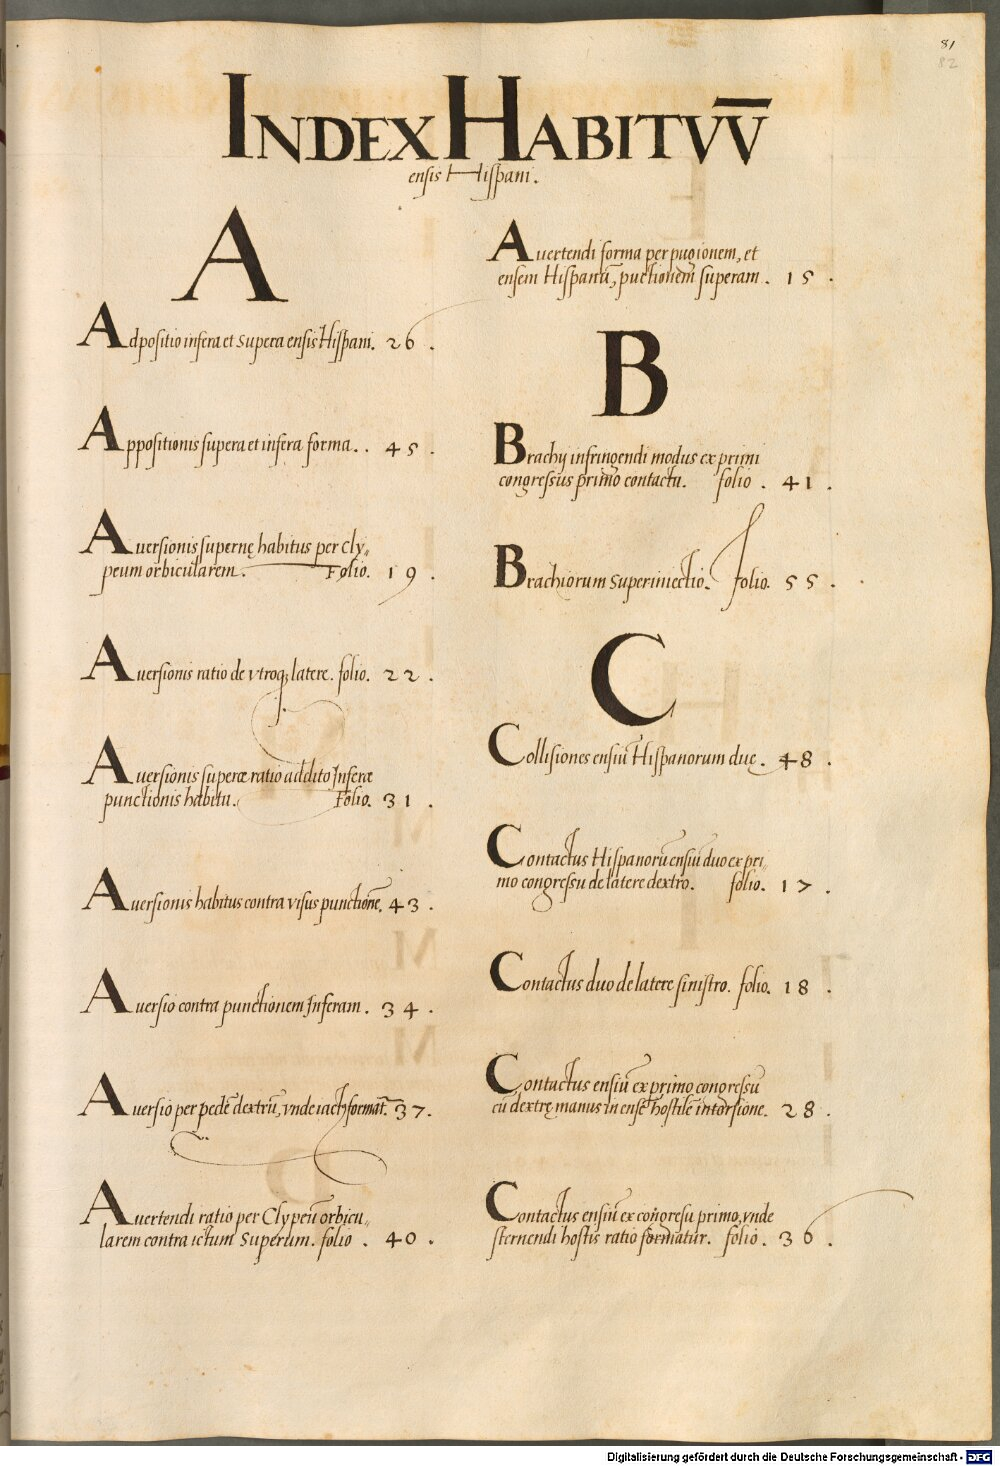 81
82
INDEX HABITVV̅
ensis Hispani.
A
Adpositio infera et supera ensis Hispani. 26.
Appositionis supera et infera forma.. 45.
Auersionis supernę habitus per Cly„
peum orbicularem. Folio. 19.
Auersionis ratio de vtroq; latere. folio. 22.
Auersionis superæ ratio addito Inferæ
punctionis habitu. Folio. 31.
Auersionis habitus contra visus punctionē. 43.
Auersio contra punctionem Inferam. 34.
Auersio per pedē dextrū, vnde iactꝰ formať. 37.
Auertendi ratio per Clypeū orbicu„
larem contra ictum Superum. folio. 40.
Auertendi forma per pugionem, et
ensem Hispanū, punctionem superam. 15.
B
Brachij infringendi modus ex primi
congressus primo contactu. folio. 41.
Brachiorum superiniectio. folio. 55.
C
Collisiones ensiū Hispanorum duę. 48.
Contactus Hispanorū ensiū duo ex pri„
mo congressu de latere dextro. folio. 17.
Contactus duo de latere sinistro. folio. 18.
Contactus ensiū ex primo congressu
cū dextrę manus in ensē hostilē intorsione. 28.
Contactus ensiū ex cōngresu primo, vnde
sternendi hostis ratio formatur. folio. 36.
Digitalisierung gefördert durch die Deutsche Forschungsgemeinschaft - DFG